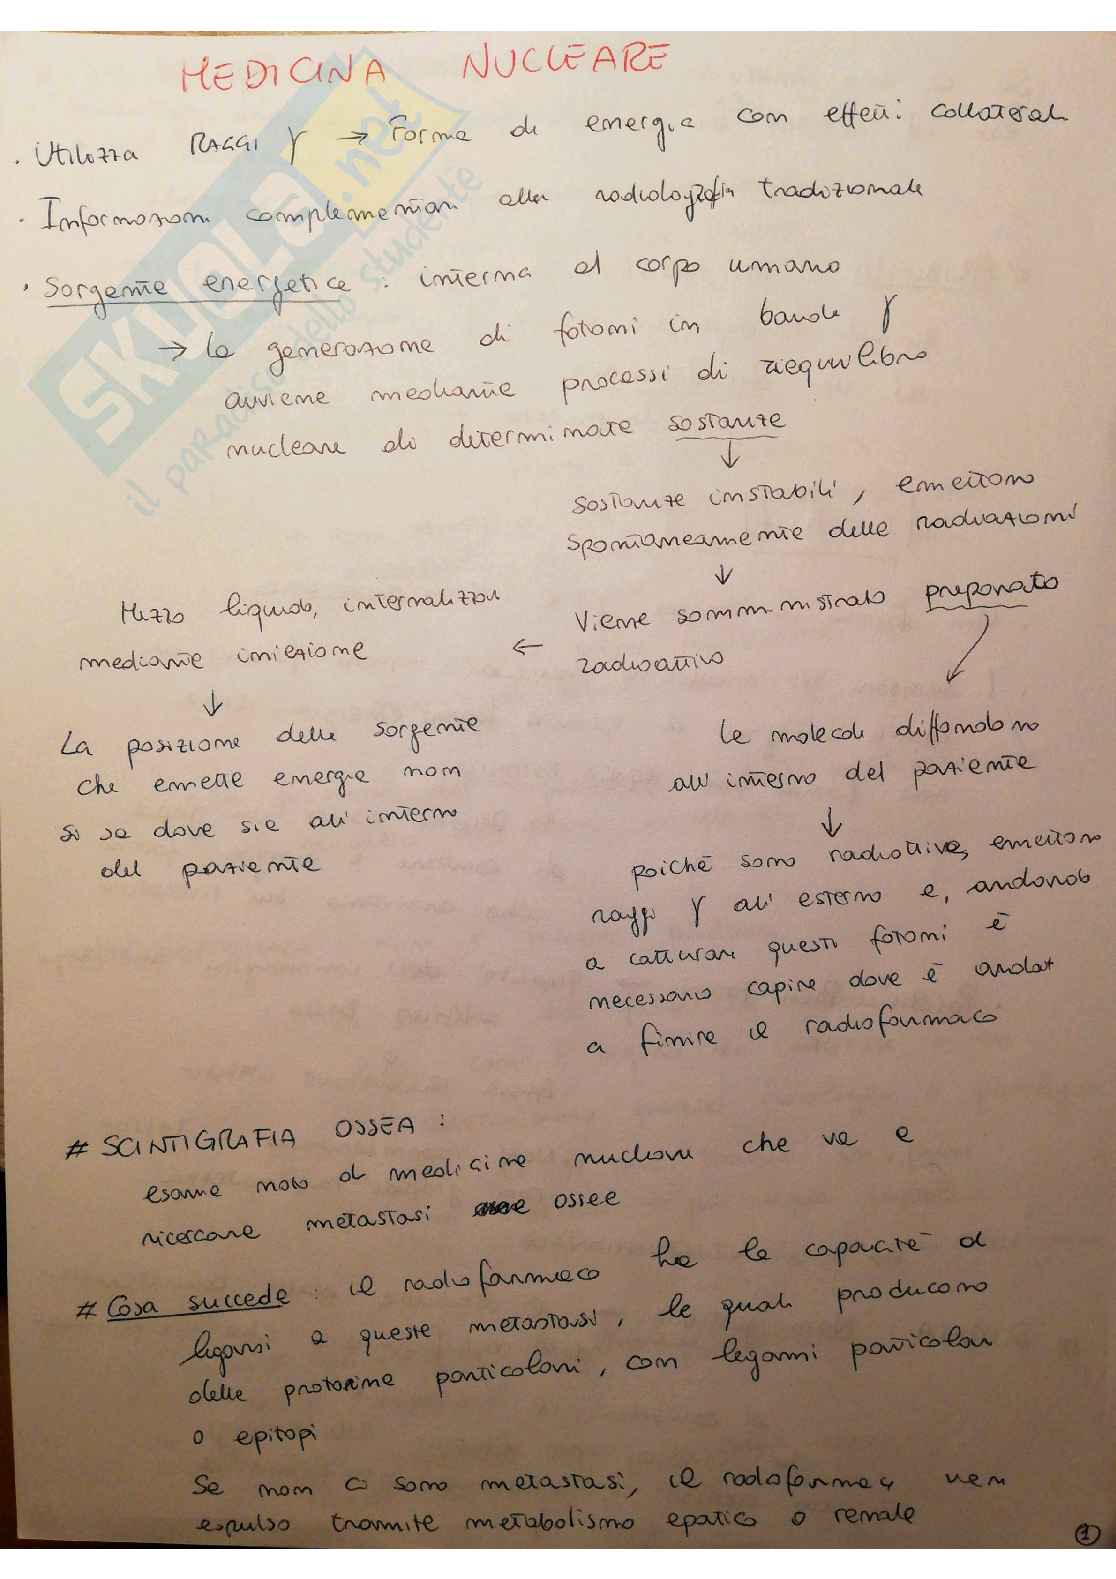 MEDICINA NUCLEARE
· Utilizza RAGGI γ → Forma di energia con effetti collaterali
· Informazioni complementari alla radiologia tradizionale
· Sorgente energetica : interna al corpo umano
→ la generazione di fotoni in banda γ
avviene mediante processi di riequilibrio
nucleare di determinate sostanze
↓
Sostanze instabili, emettono
spontaneamente delle radiazioni
↓
Viene somministrato preparato
radioattivo
←
Mezzo liquido, internalizzato
mediante iniezione
↓
La posizione della sorgente
che emette energia non
si sa dove sia all'interno
del paziente
Le molecole diffondono
all'interno del paziente
↓
poiché sono radioattive, emettono
raggi γ all'esterno e, andando
a catturare questi fotoni è
necessario capire dove è andato
a finire il radiofarmaco
# SCINTIGRAFIA OSSEA :
esame noto di medicina nucleare che va a
ricercare metastasi ossee
# Cosa succede : il radiofarmaco ha la capacità di
legarsi a queste metastasi, le quali producono
delle proteine particolari, con legami particolari
o epitopi
Se non ci sono metastasi, il radiofarmaco viene
espulso tramite metabolismo epatico o renale
1
SKUOLA.net
il paradiso dello studente